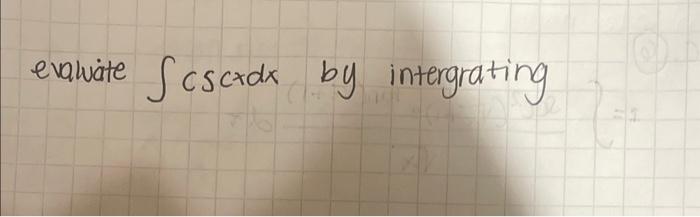 evaluate ∫cscxdx by intergrating